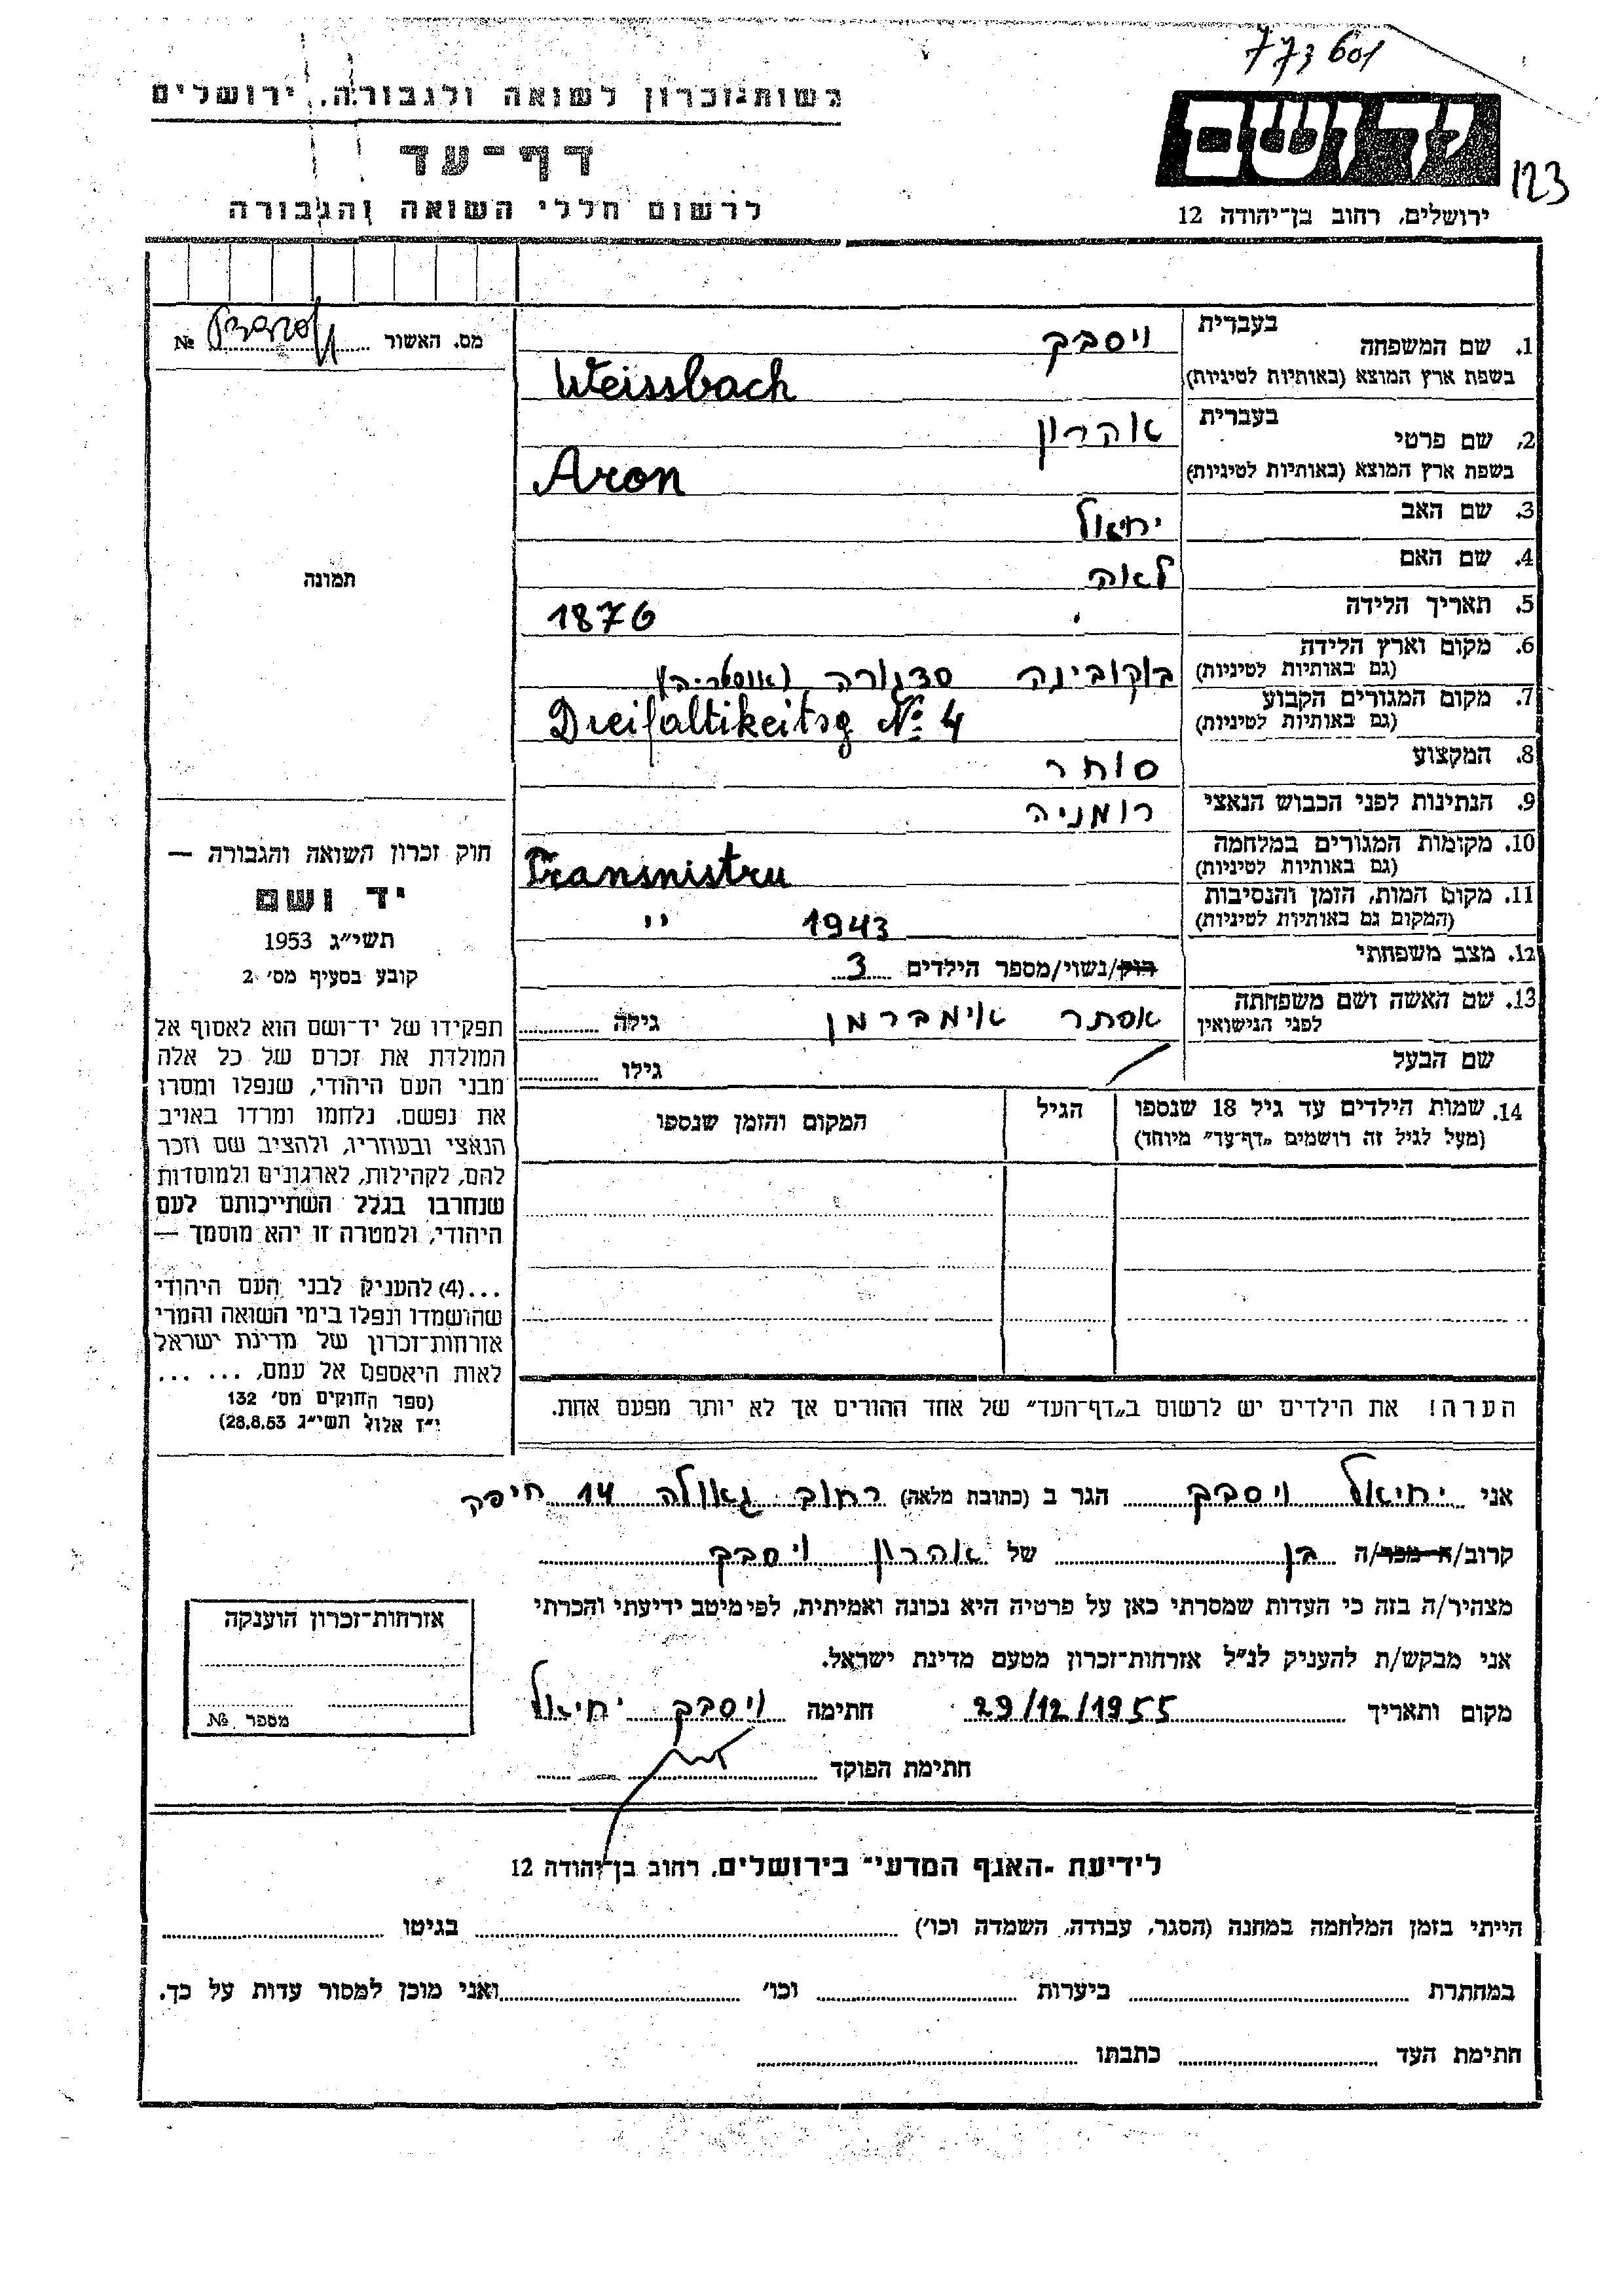 773601
רשות־זכרון לשואה ולגבורה, ירושלים
דף־עד
לרשום חללי השואה והגבורה
יד ושם
123
ירושלים, רחוב בן־יהודה 12
מס. האשור № 
1. שם המשפחה בעברית ויסבך
בשפת ארץ המוצא (באותיות לטיניות) Weissbach
2. שם פרטי בעברית אהרון
בשפת ארץ המוצא (באותיות לטיניות) Aron
3. שם האב יחיאל
4. שם האם לאה
5. תאריך הלידה 1876
6. מקום וארץ הלידה (גם באותיות לטיניות) בוקובינה סדגורה (אוסטריה)
7. מקום המגורים הקבוע (גם באותיות לטיניות) Dreifaltikeitsg № 4
8. המקצוע סוחר
9. הנתינות לפני הכבוש הנאצי רומניה
10. מקומות המגורים במלחמה (גם באותיות לטיניות) Transnistru
11. מקום המות, הזמן והנסיבות (המקום גם באותיות לטיניות) 1943 יי
12. מצב משפחתי רוק/נשוי/מספר הילדים 3
13. שם האשה ושם משפחתה לפני הנישואין אסתר אימברמן גילה
שם הבעל גילו
14. שמות הילדים עד גיל 18 שנספו הגיל המקום והזמן שנספו
(מעל לגיל זה רושמים „דף־עד” מיוחד)
הערה! את הילדים יש לרשום ב„דף־העד” של אחד ההורים אך לא יותר מפעם אחת.
תמונה
חוק זכרון השואה והגבורה —
יד ושם
תשי״ג 1953
קובע בסעיף מס׳ 2
תפקידו של יד־ושם הוא לאסוף אל
המולדת את זכרם של כל אלה
מבני העם היהודי, שנפלו ומסרו
את נפשם, נלחמו ומרדו באויב
הנאצי ובעוזריו, ולהציב שם וזכר
להם, לקהילות, לארגונים ולמוסדות
שנחרבו בגלל השתייכותם לעם
היהודי, ולמטרה זו יהא מוסמך —
...(4) להעניק לבני העם היהודי
שהושמדו ונפלו בימי השואה והמרי
אזרחות־זכרון של מדינת ישראל
לאות היאספם אל עמם, ... ...
(ספר החוקים מס׳ 132
י״ז אלול תשי״ג 28.8.53)
אני יחיאל ויסבך הגר ב (כתובת מלאה) רחוב גאולה 14 חיפה
קרוב/ה מכר/ה בן של אהרון ויסבך
מצהיר/ה בזה כי העדות שמסרתי כאן על פרטיה היא נכונה ואמיתית, לפי מיטב ידיעתי והכרתי
אני מבקש/ת להעניק לנ״ל אזרחות־זכרון מטעם מדינת ישראל.
מקום ותאריך 29/12/1955 חתימה ויסבך יחיאל
חתימת הפוקד
אזרחות־זכרון הוענקה
מספר №
לידיעת „האגף המדעי” בירושלים, רחוב בן־יהודה 12
הייתי בזמן המלחמה במחנה (הסגר, עבודה, השמדה וכו׳) בגיטו
במחתרת ביערות וכו׳ ואני מוכן למסור עדות על כך.
חתימת העד כתבתו